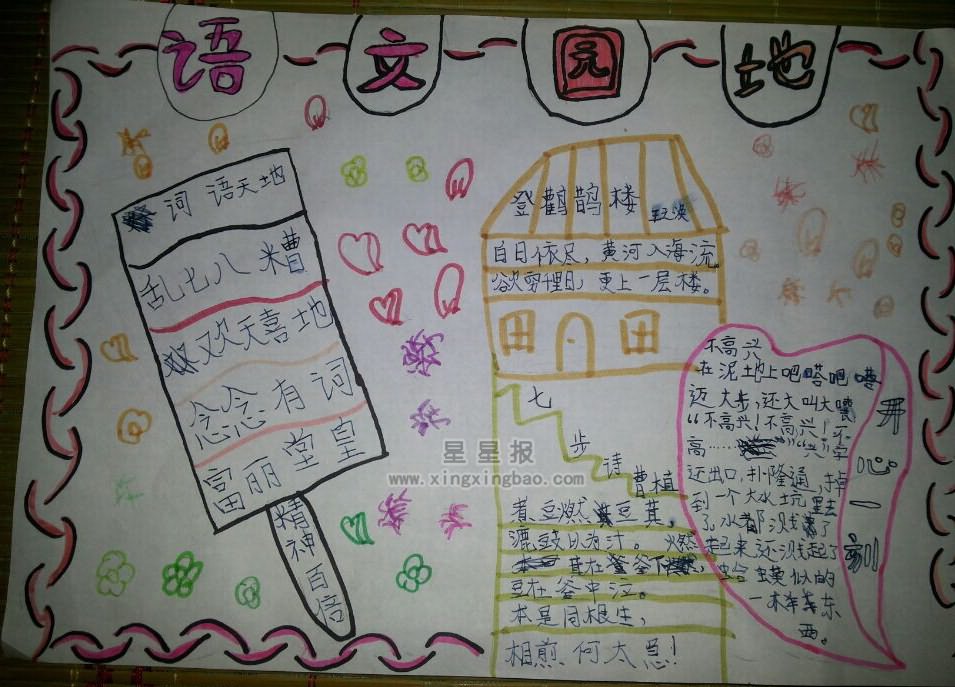 语文园地
词语天地
乱七八糟
欢天喜地
念念有词
富丽堂皇
精神百倍
星星报
www.xingxingbao.com
登鹳鹊楼
白日依尽，黄河入海流
欲穷里目，更上一层楼。
七步诗 曹植
煮豆燃豆萁，
漉豉以为汁。
豆在釜中泣。
本是同根生，
相煎何太急！
开心一刻
不高兴
在泥地上吧嗒吧嗒
迈大步，还大叫大
“不高兴，不高兴！不
高……”“兴”字
还出口，扑隆通，掉
到一个大水坑里去
了，水都溅了
起来，还溅起了
蛤蟆似的
东
西。